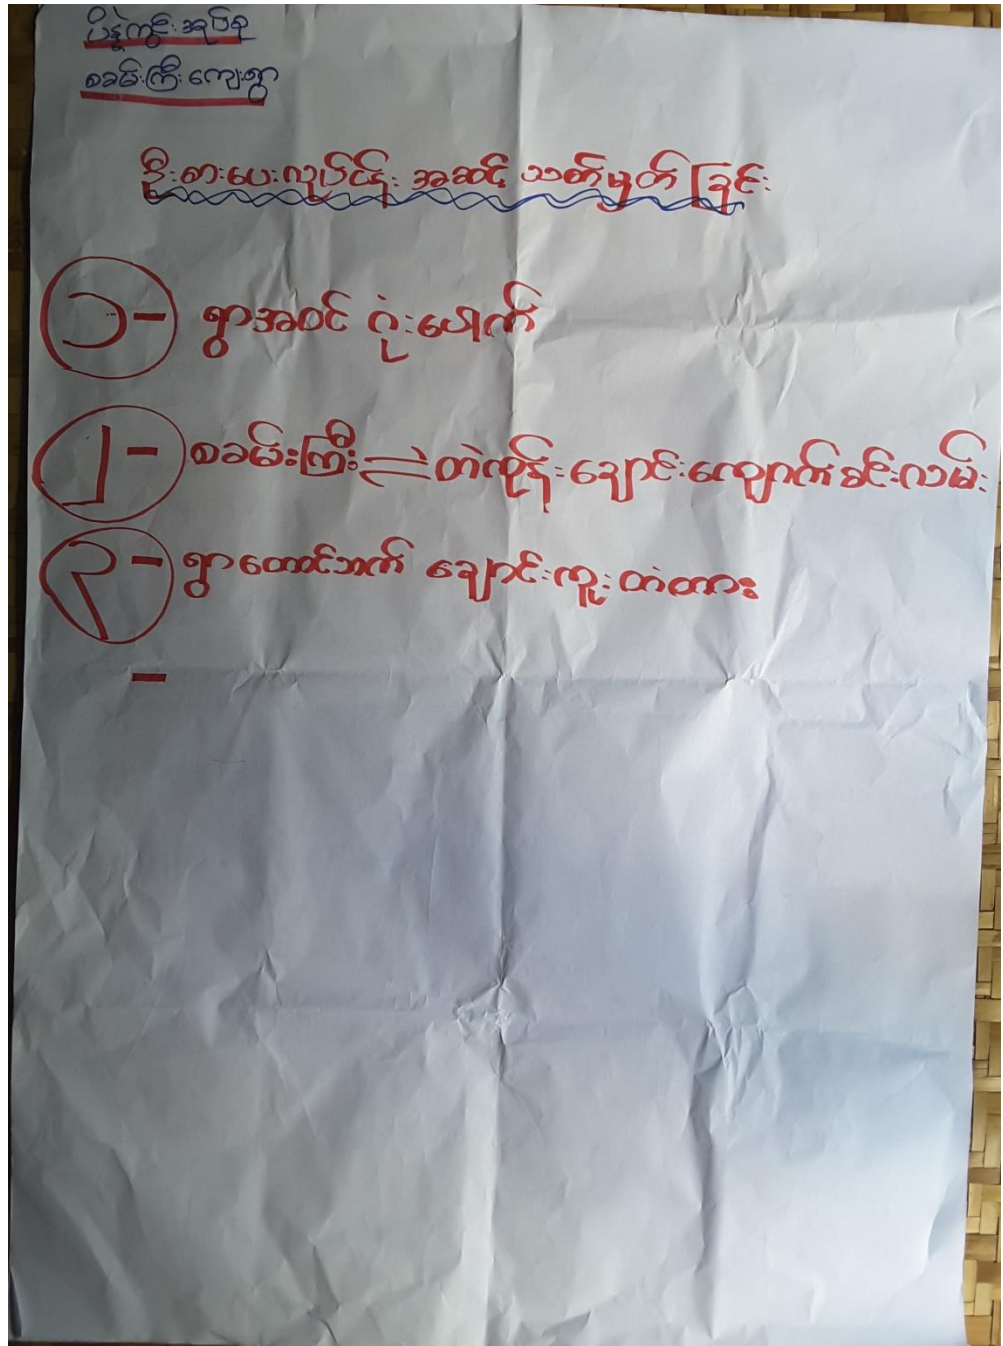 ပိန္နဲကွင်းအုပ်စု
စခမ်းကြီးကျေးရွာ
ဦးစားပေးလုပ်ငန်း အဆင့် သတ်မှတ်ခြင်း
၁- ရွာအဝင် ဂုံးပေါက်
၂- စခမ်းကြီး ⇌ တဲကုန်းချောင်းကျောက်ခင်းလမ်း
၃- ရွာတောင်ဘက် ချောင်းကူးတံတား
-